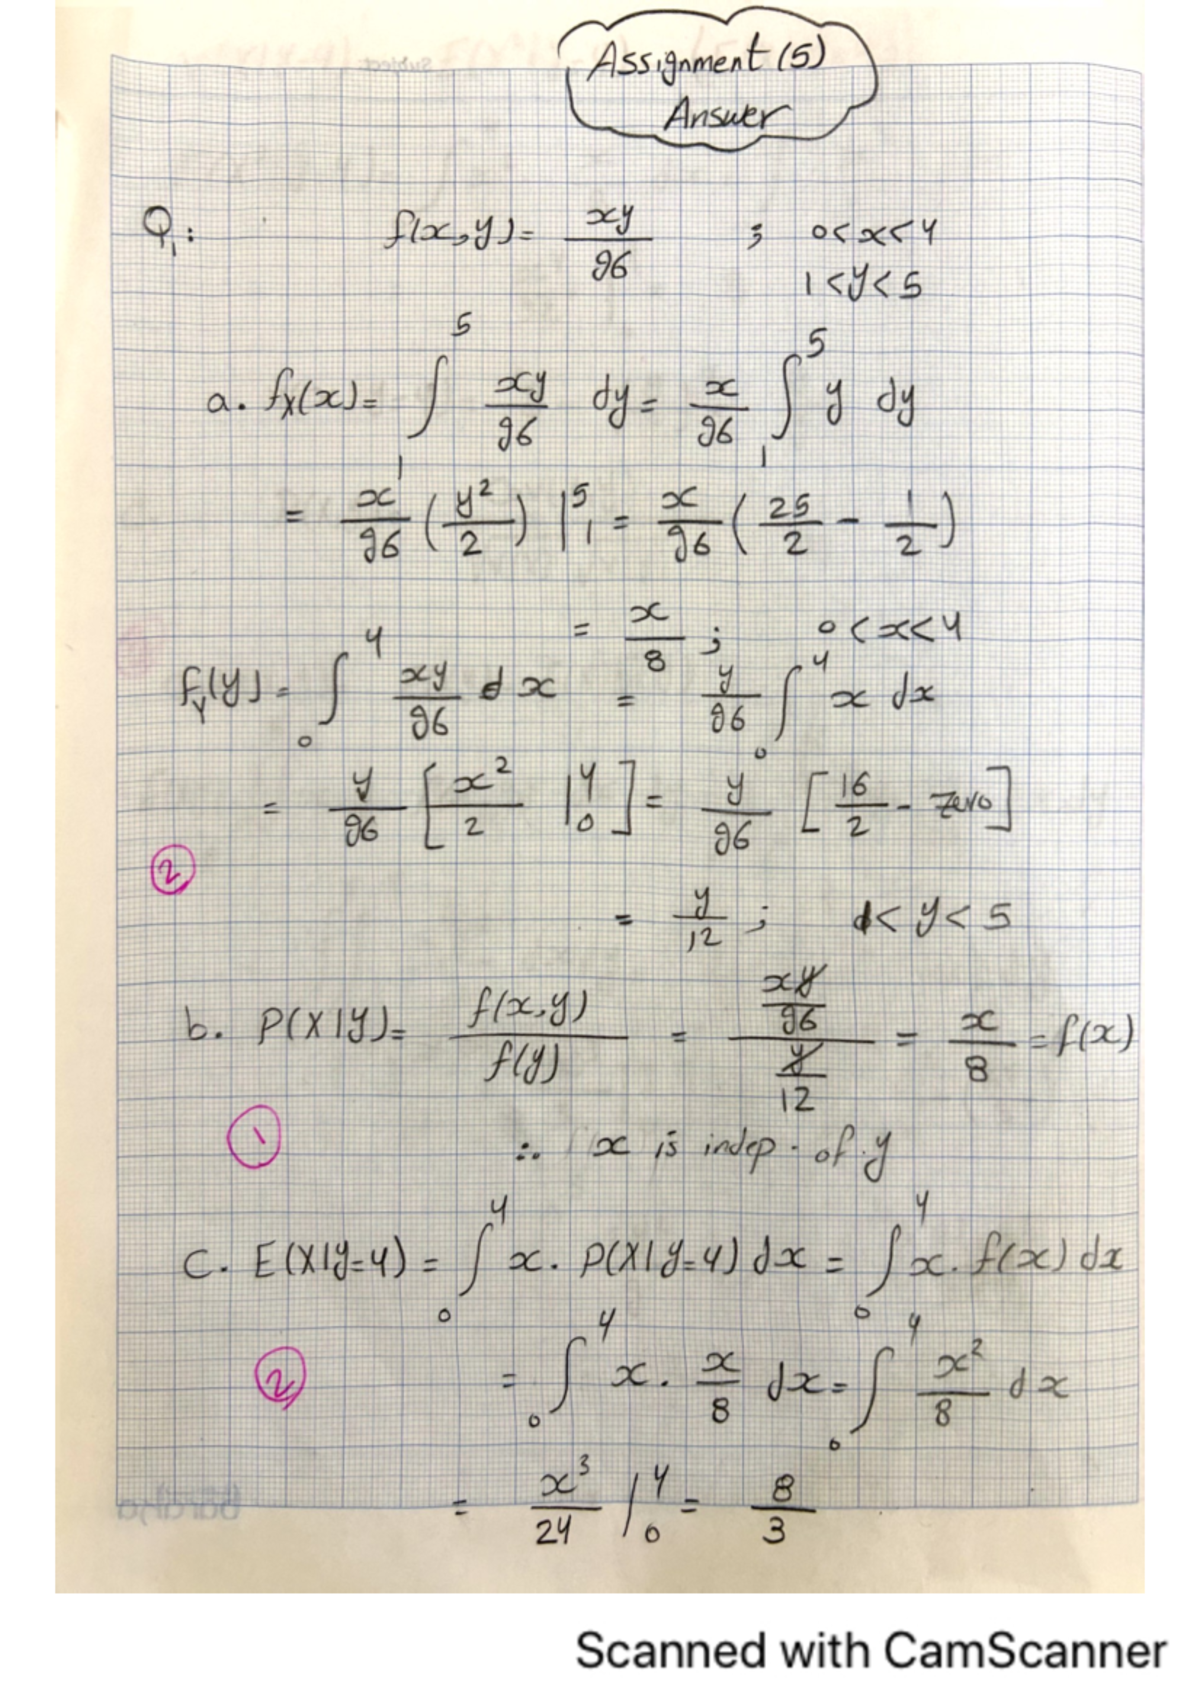 Assignment (5)
Answer
Q1: f(x,y) = xy/96 ; 0<x<4
1<y<5
a. fX(x) = ∫₁⁵ xy/96 dy = x/96 ∫₁⁵ y dy
= x/96 (y²/2) |₁⁵ = x/96 (25/2 - 1/2)
= x/8 ; 0<x<4
fY(y) = ∫₀⁴ xy/96 dx = y/96 ∫₀⁴ x dx
= y/96 [x²/2 |₀⁴] = y/96 [16/2 - zero]
②
= y/12 ; 1<y<5
b. P(X|Y) = f(x,y)/f(y) = (xy/96)/(y/12) = x/8 = f(x)
① ∴ x is indep. of y
C. E(X|y=4) = ∫₀⁴ x. P(X|y=4) dx = ∫₀⁴ x. f(x) dx
② = ∫₀⁴ x. x/8 dx = ∫₀⁴ x²/8 dx
= x³/24 |₀⁴ = 8/3
Scanned with CamScanner